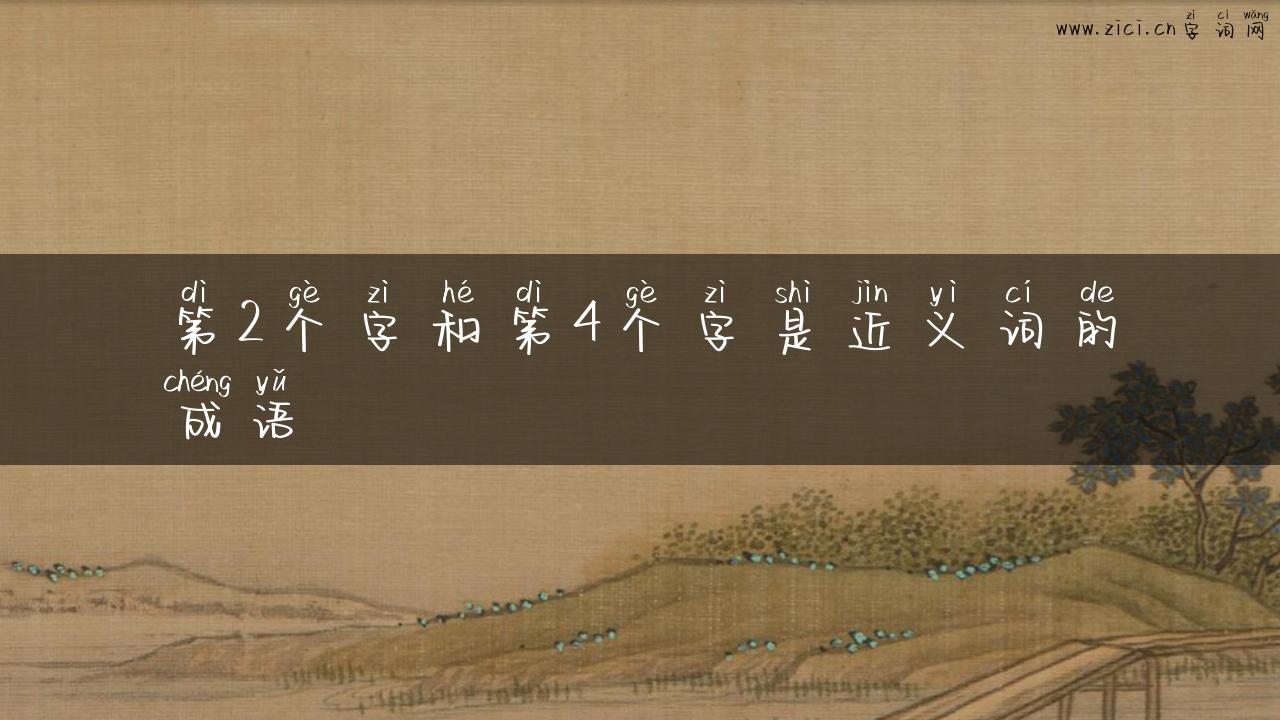 zì cí wǎng
www.zici.cn字词网
dì gè zì hé dì gè zì shì jìn yì cí de
第2个字和第4个字是近义词的
chéng yǔ
成语